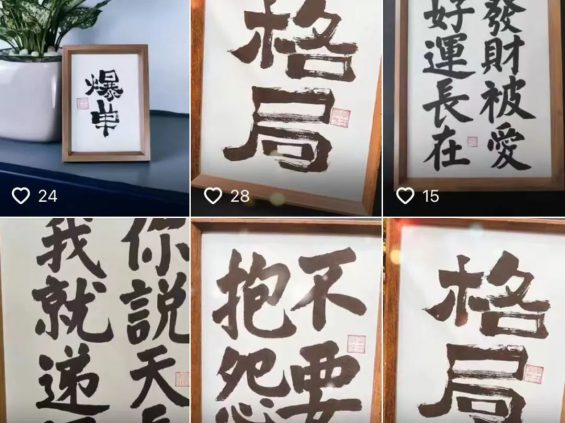 爆单
24
格局
28
發財被愛
好運長在
15
你說天
我就递
不要
抱怨
格局